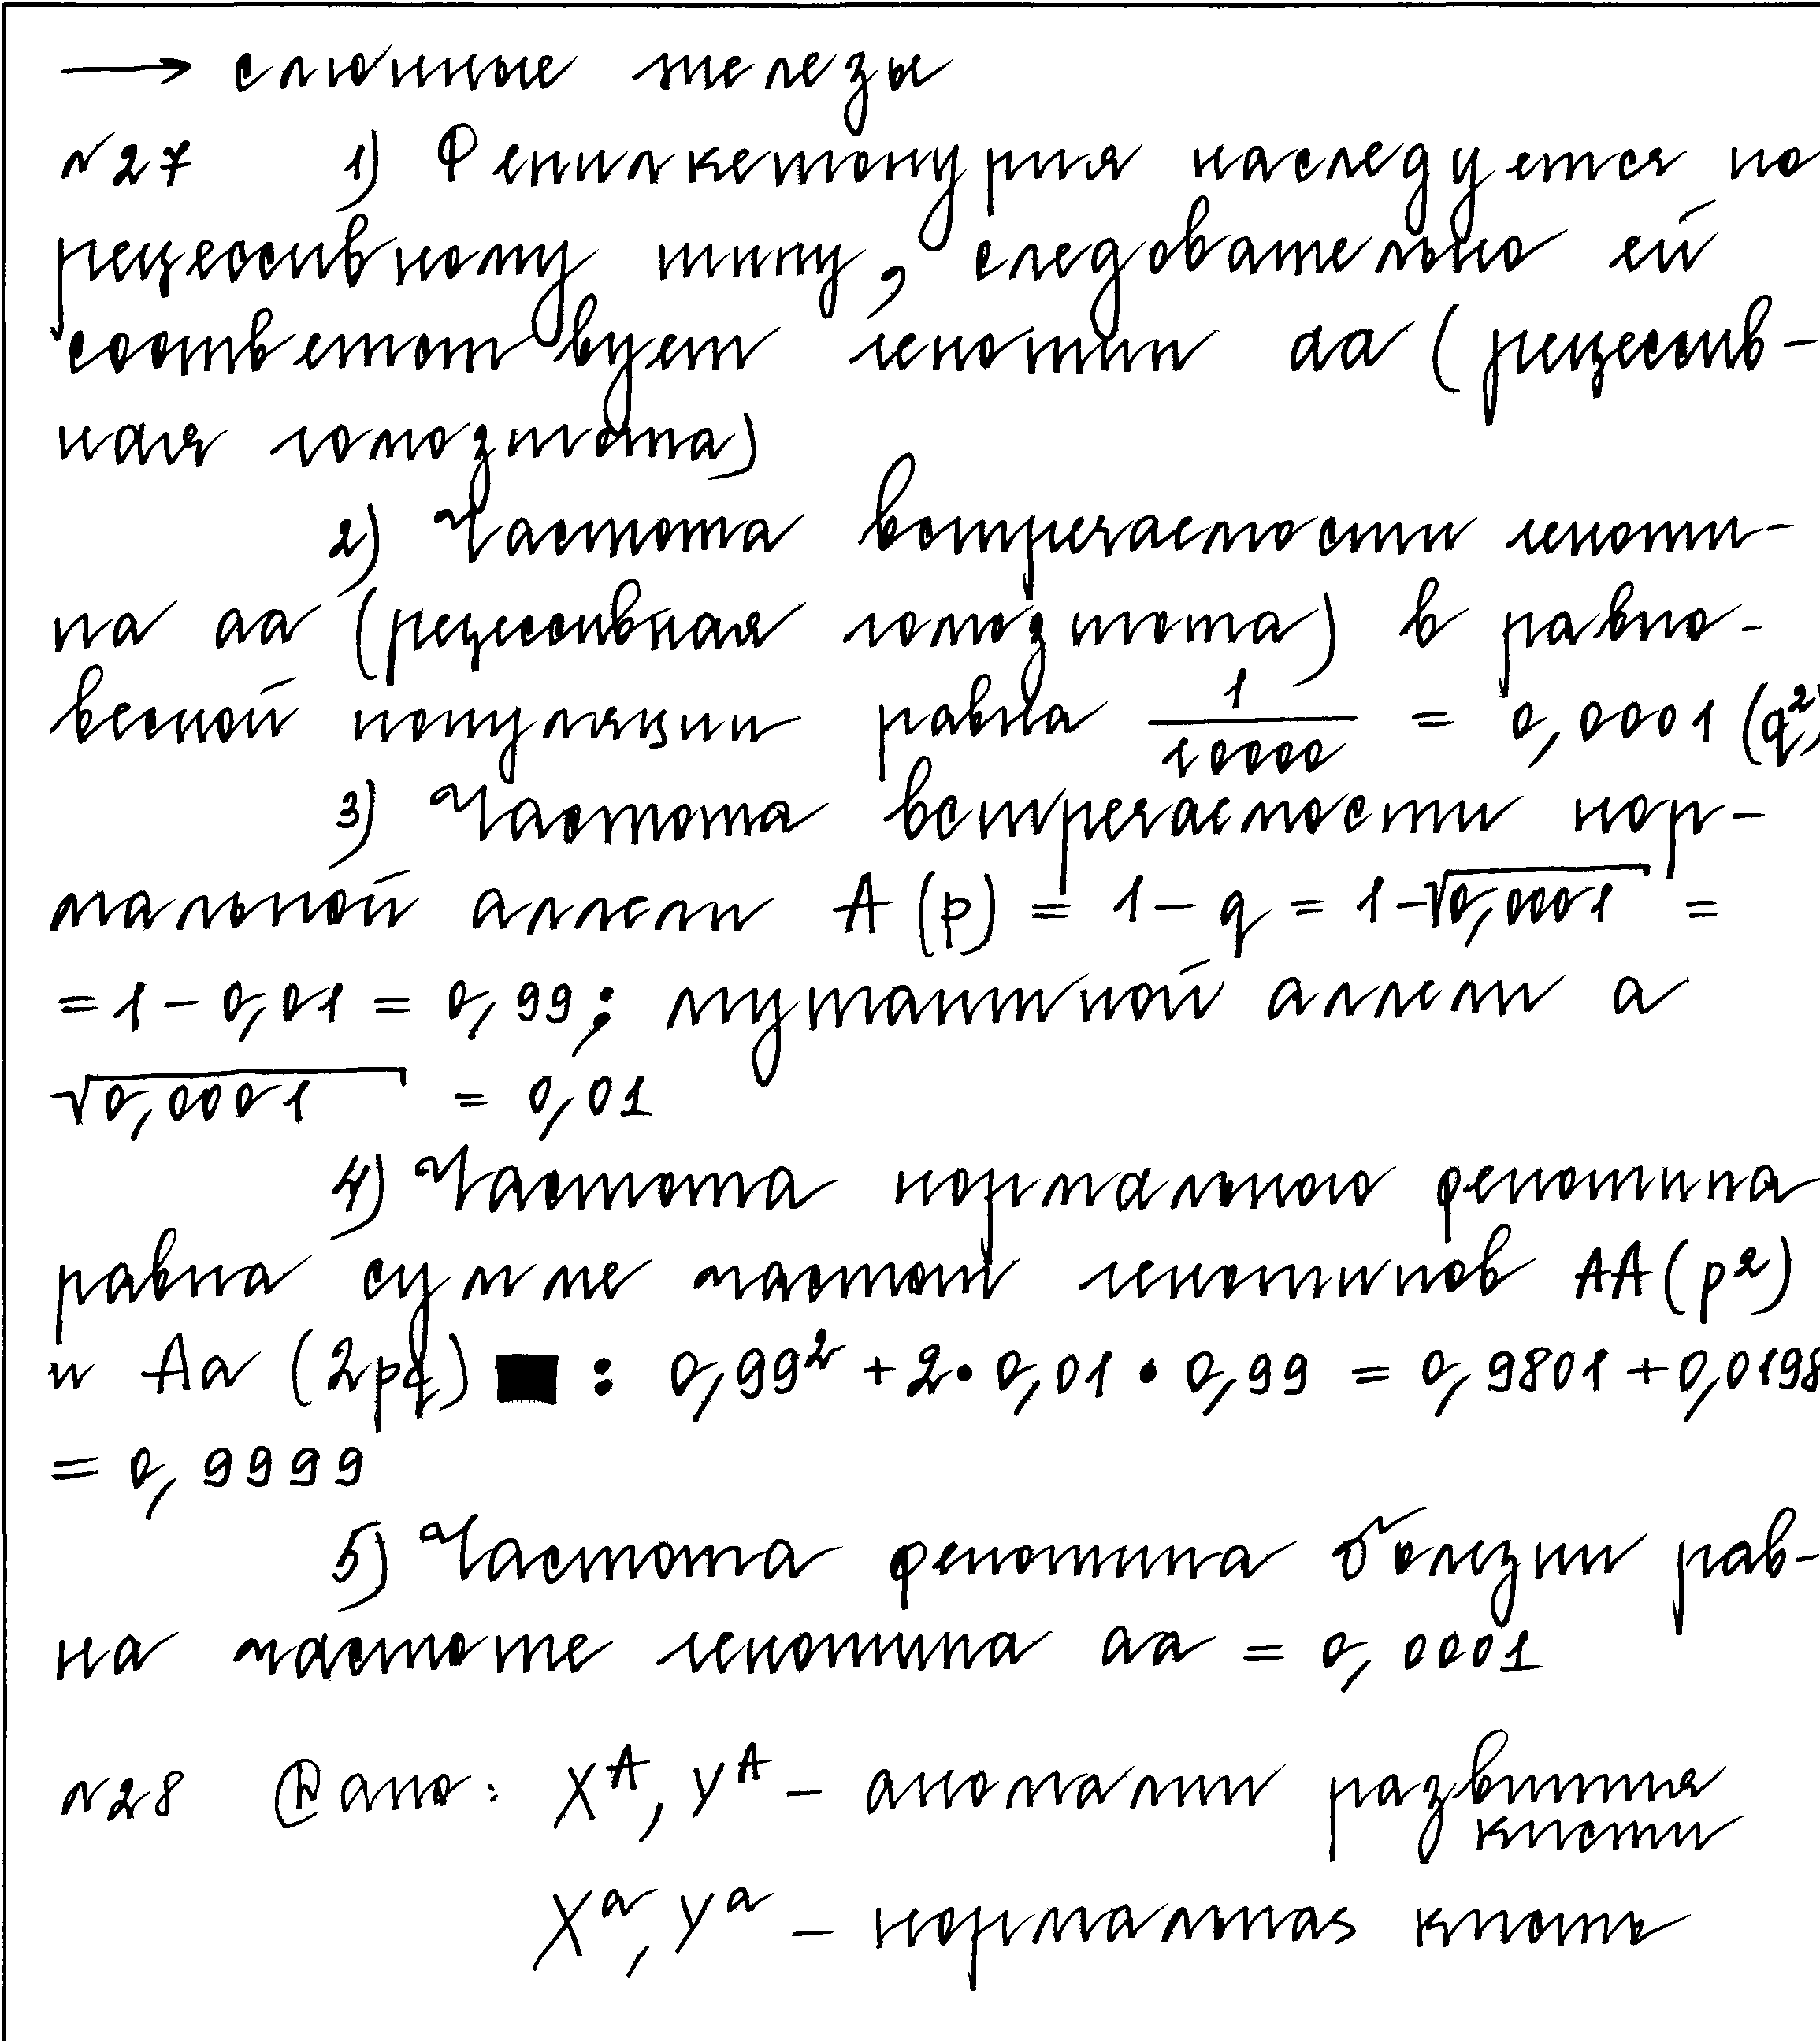 → слюнные железы
№27 1) Фенилкетонурия наследуется по
рецессивному типу, следовательно ей
соответствует генотип aa (рецессив-
ная гомозигота)
2) Частота встречаемости геноти-
па aa (рецессивная гомозигота) в равно-
весной популяции равна 1/10000 = 0,0001 (q²)
3) Частота встречаемости нор-
мальной аллели A (p) = 1 - q = 1 - √0,0001 =
= 1 - 0,01 = 0,99; мутантной аллели a
√0,0001 = 0,01
4) Частота нормального фенотипа
равна сумме частот генотипов AA (p²)
и Aa (2pq) : 0,99² + 2 · 0,01 · 0,99 = 0,9801 + 0,0198
= 0,9999
5) Частота фенотипа болезни рав-
на частоте генотипа aa = 0,0001
№28 Дано: Xᴬ, Yᴬ – аномалии развития
кисти
Xᵃ, Yᵃ – нормальная кисть